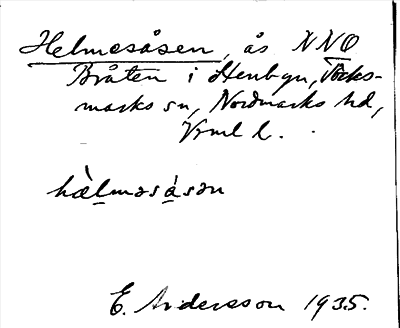 Helmesåsen, ås NNO
Bråten i Stenbyn, Töcks-
marks sn, Nordmarks hd,
Vrml l.
hæ̀lməsásən
E. Andersson 1935.